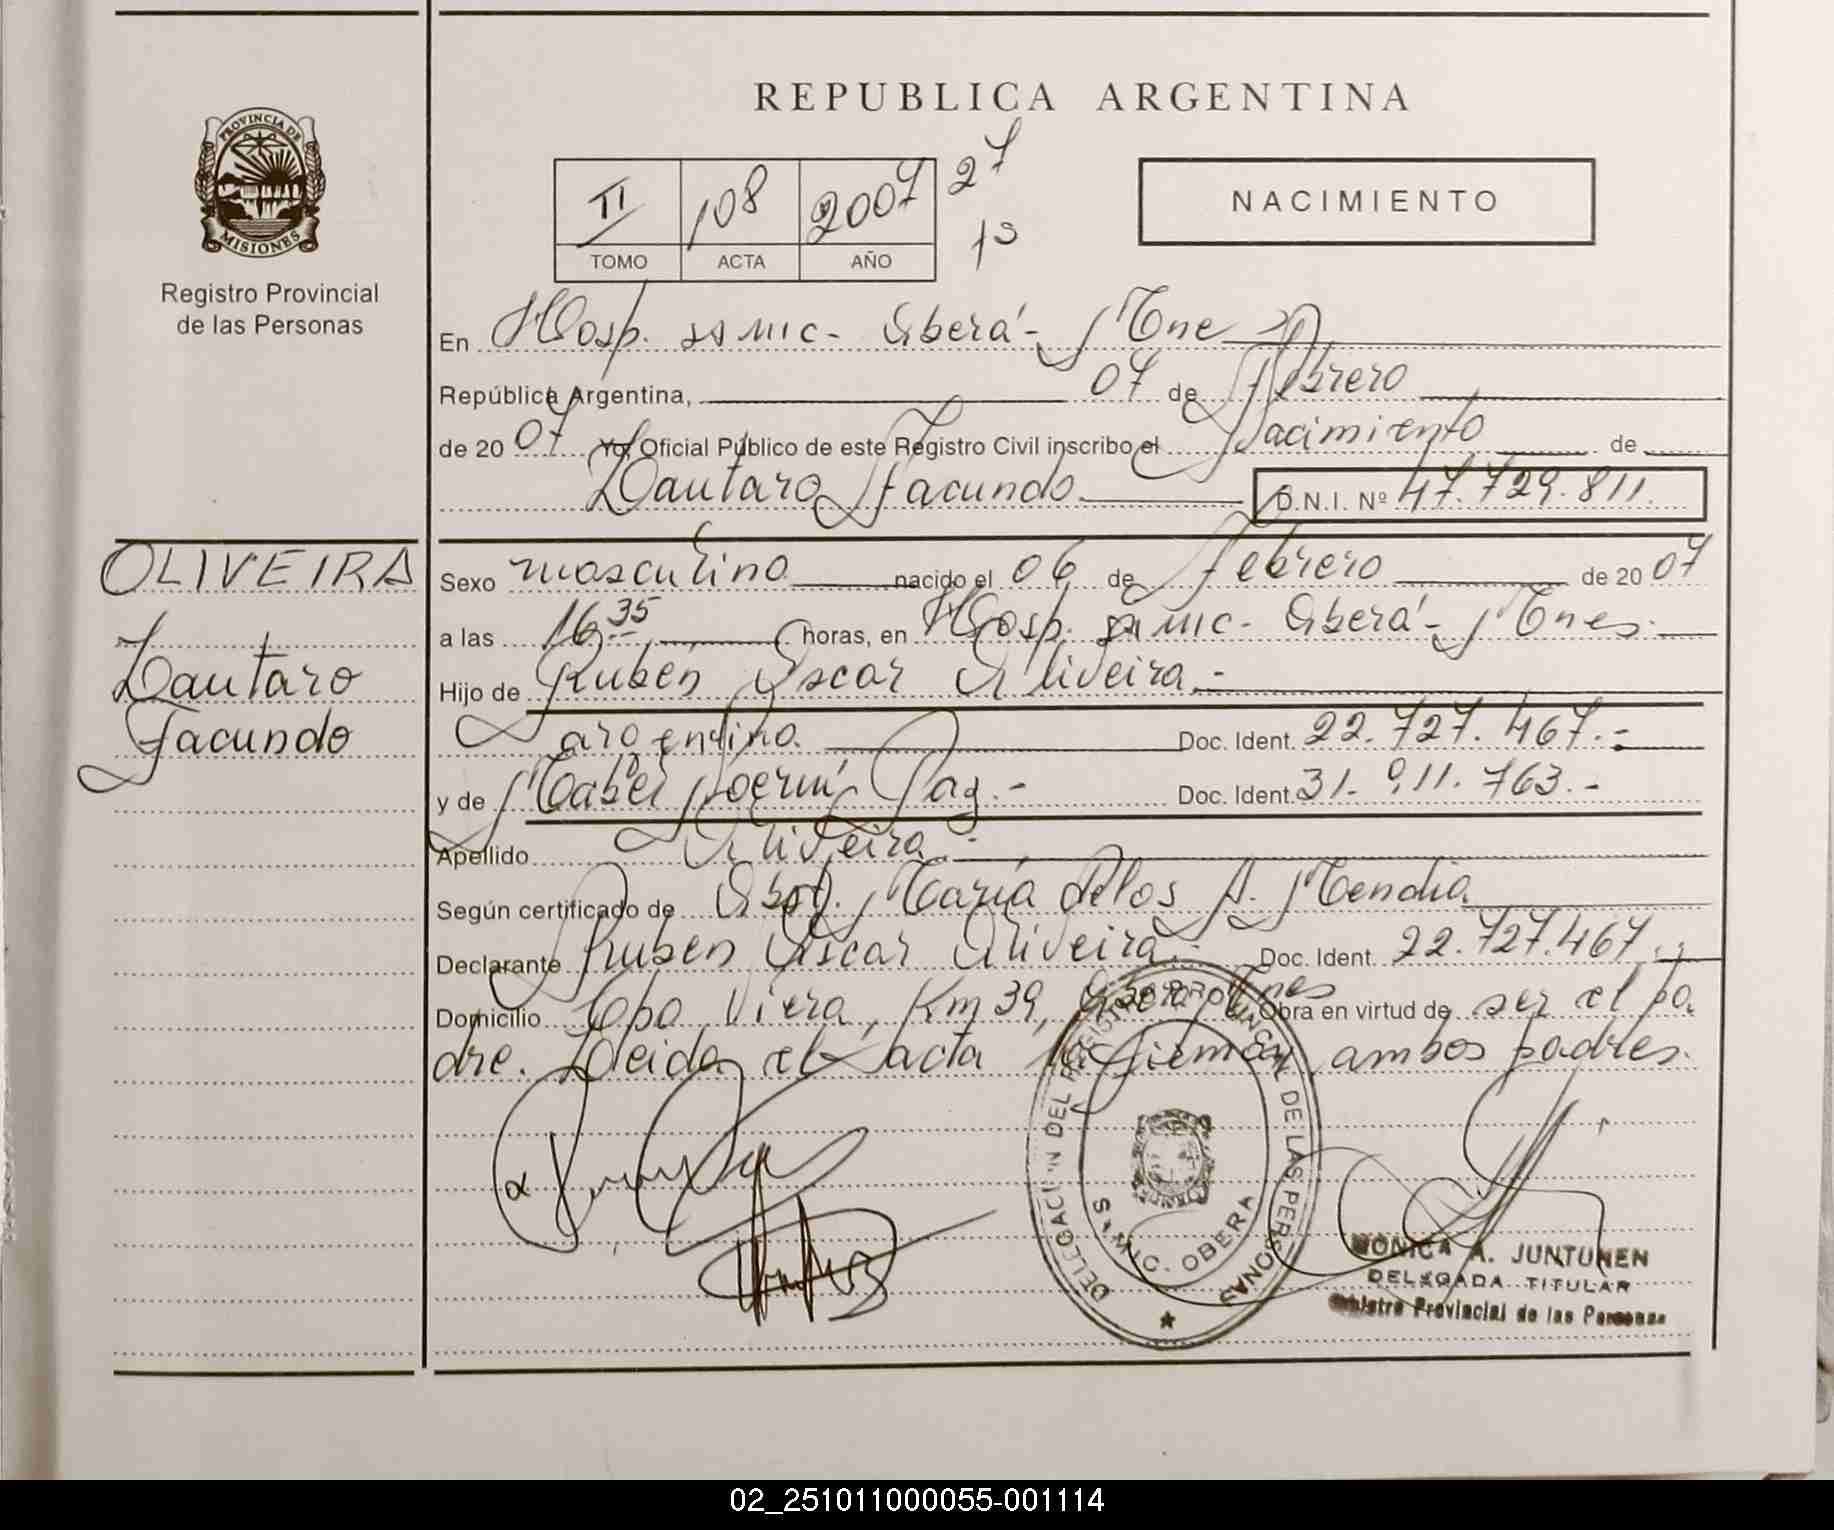 REPUBLICA ARGENTINA
PROVINCIA DE
MISIONES
Registro Provincial
de las Personas
II 108 2007 27
TOMO ACTA AÑO 1S
NACIMIENTO
En Hosp. SAMIC - Oberá - Mnes
República Argentina, 07 de Febrero
de 2007 Yo, Oficial Público de este Registro Civil inscribo el Nacimiento de
Lautaro Facundo D.N.I. Nº 47.729.811.
OLIVEIRA
Lautaro
Facundo
Sexo masculino nacido el 06 de Febrero de 2007
a las 16 35 horas, en Hosp. SAMIC - Oberá - Mnes.
Hijo de Rubén Oscar Oliveira.-
argentino. Doc. Ident. 22.727.467.-
y de Mabel Noemí Paz.- Doc. Ident. 31.911.763.-
Apellido Oliveira.-
Según certificado de Obst. María de los A. Mendia
Declarante Rubén Oscar Oliveira. Doc. Ident. 22.727.467.-
Domicilio Cpo Viera, Km 39, Oberá, Mnes Obra en virtud de ser el pa
dre. Leida el acta la firman ambos padres.
DELEGACION DEL REGISTRO PROVINCIAL DE LAS PERSONAS
SAMIC. OBERA
MONICA A. JUNTUNEN
DELEGADA TITULAR
Registro Provincial de las Personas
02_251011000055-001114